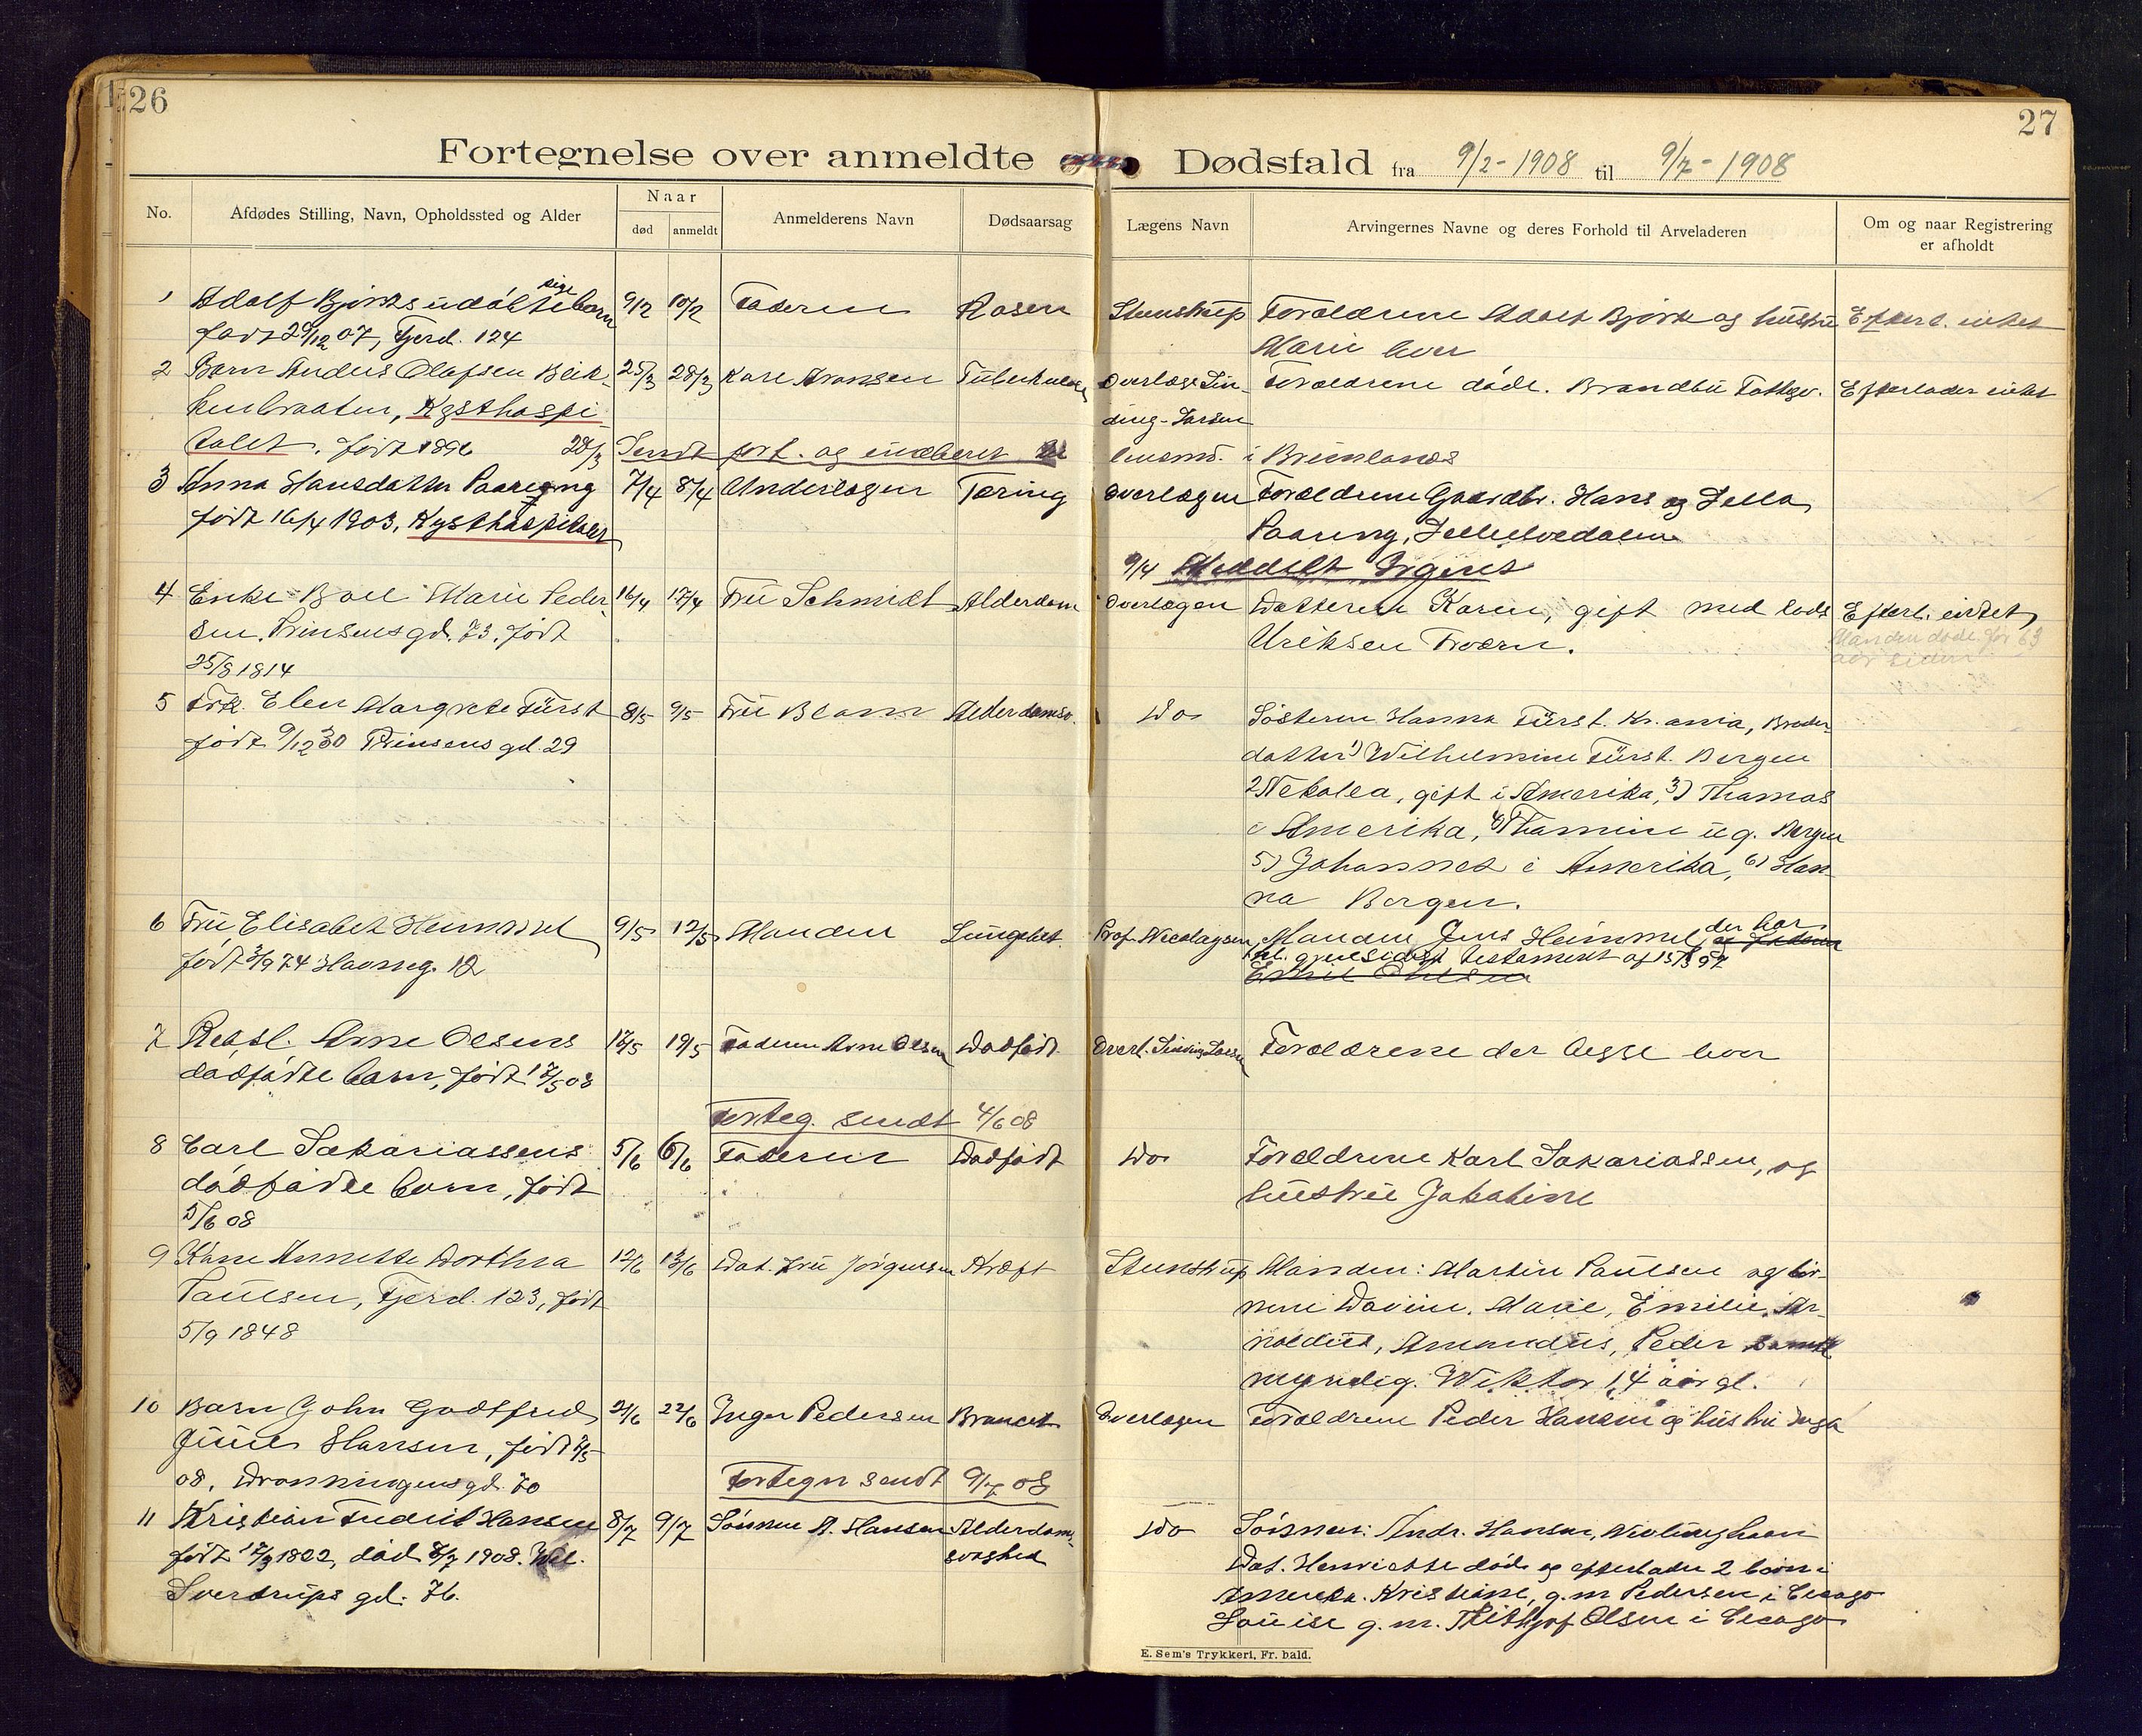 26
27
Fortegnelse over anmeldte Dødsfald fra 9/2-1908 til 9/7-1908
No.
Afdødes Stilling, Navn, Opholdssted og Alder
Naar
død
anmeldt
Anmelderens Navn
Dødsaarsag
Lægens Navn
Arvingernes Navne og deres Forhold til Arveladeren
Om og naar Registrering
er afholdt
1 Adolf Bjørks 9/2 10/2 Faderen Rosen Steenstrup Forældrene Adolf Bjørk og hustru Efterl. intet
født 29/12 07, Fjerd. 124 Marie lever
2 Barn Anders Olafsen Blik- 25/3 28/3 Karl Aronsen Tuberkulose Overlæge Sin- Forældrene døde. Brandbu Fattigv. Efterlader intet
kenbraaten, Kysthospi- ding-Larsen
talet, født 1896 28/3 Sendt fort. og indberet til lensmd. i Brunlanes
3 Anna Hansdatter Paaring 7/4 8/4 Underlægen Tæring Overlægen Forældrene Gaardbr. Hans og
født 16/4 1903, Kysthospitalet Paaring,
9/4 Meddelt
4 Enke Boel Marie Peder- 16/4 17/4 Fru Schmidt Alderdom Overlægen Datteren Karen, gift med lods Efterl. intet,
sen, Prinsensgd. 73, født Uriksen Tværn. Manden døde for 63
25/8 1814 aar siden
5 Frk. Elen Margrete Fürst 8/5 9/5 Fru Blom Alderdomsv. Do Søsteren Hanna Fürst. Kr.ania, Broder-
født 9/12 30 Prinsens gd. 29 datter 1) Wilhelmine Fürst. Bergen
2) Nekolea, gift i Amerika, 3) Thomas
i Amerika, 4) Thomine ug. Bergen
5) Johannes i Amerika, 6) Han-
na Bergen.
6 Fru Elisabet Heimmel 9/5 12/5 Manden Lungebet. Prof. Nicolaysen Manden Jens Heimmel, der har
født 3/9 74 Havneg. 12 gjensidigt testament af 15/3 97
7 Rebsl. Arne Olsens 17/5 19/5 Faderen Arne Olsen Dødfødt Overl. Sinding Larsen Forældrene der begge lever
dødfødte barn, født 17/5 08
Forteg. sendt 4/6 08
8 Carl Sakariassens 5/6 6/6 Faderen Dødfødt Do Forældrene Karl Sakariassen, og
dødfødte barn, født hustru Jakobine
5/6 08
9 Kone Annette Dorthea 12/6 13/6 Dat. fru Jørgensen Kræft Steenstrup Manden: Martin Paulsen og bør-
Paulsen, Fjerd. 123, født nene Davine, Marie, Emilie, Ar-
5/9 1848 noldus, Amandus, Peder
myndig. Wiktor 14 aar gl.
10 Barn John Godtfred 21/6 22/6 Inger Pedersen Overlægen Forældrene Peder Hansen og hustru Inga
Juul Hansen, født
08, Dronningensgd. 70 Fortegn sendt 9/7 08
11 Kristian Fredrik Hansen 8/7 9/7 Sønnen A. Hansen Alderdoms- Do Sønnen: Andr. Hansen,
født 17/9 1822, død 8/7 1908. svaghed Dat. Henriette død og efterlader 2 børn i
Sverdrups gd. 76. Amerika. Kristiane, g.m Pedersen i Cicago
Louise g. m. Olsen i Cicago
E. Sem's Trykkeri, Fr. hald.